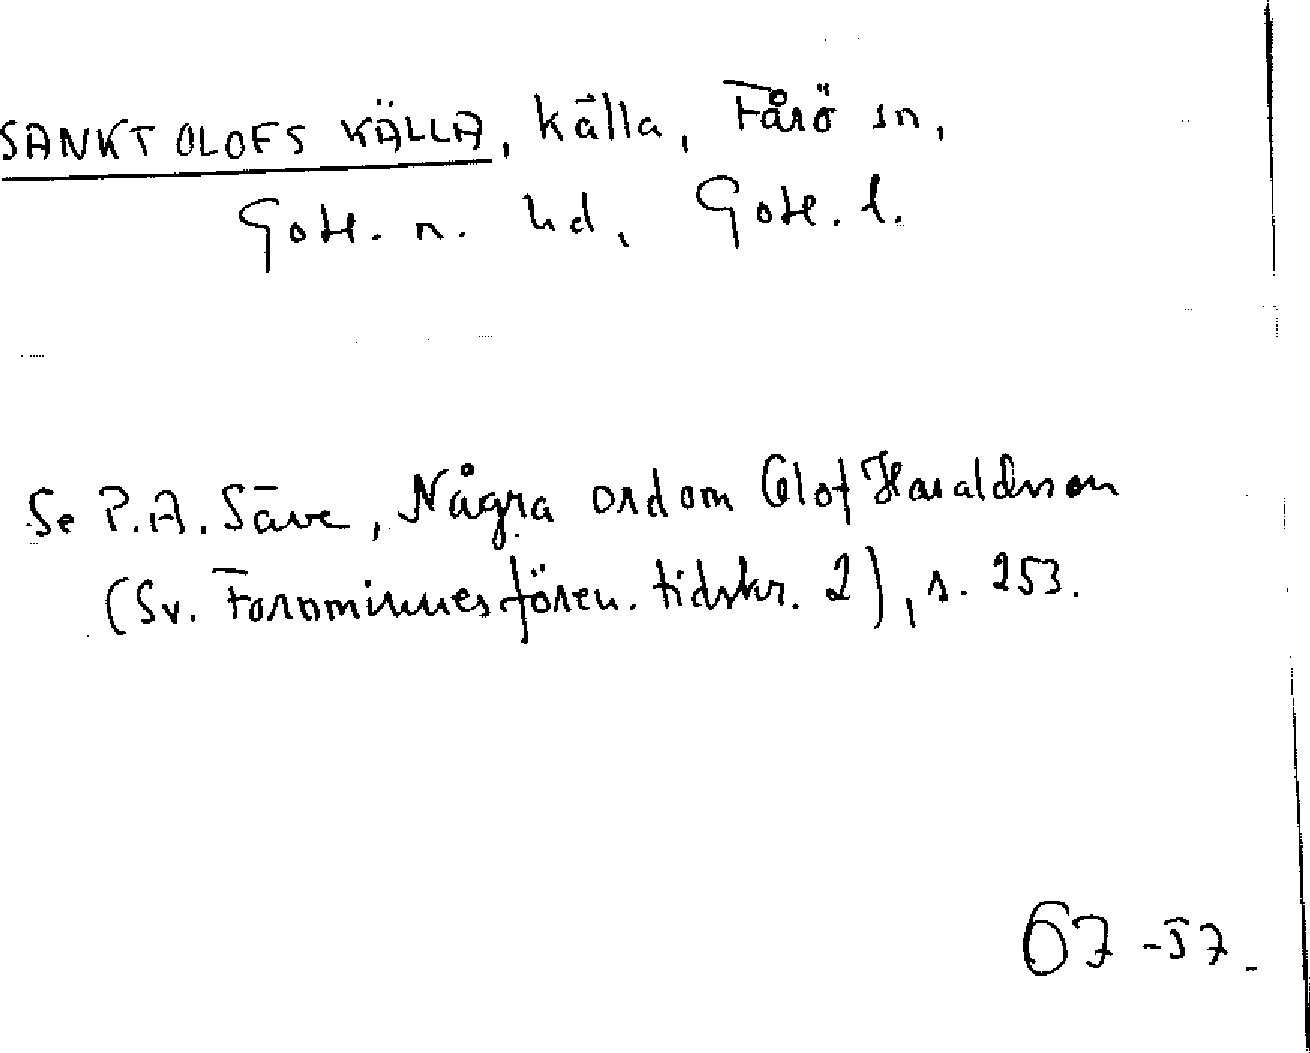 SANKT OLOFS KÄLLA, källa, Fårö sn,
Gotl. n. hd, Gotl. l.
Se P.A. Säve, Några ord om Olof Haraldsson
(Sv. Fornminnesfören. tidskr. 2), s. 253.
67-57.